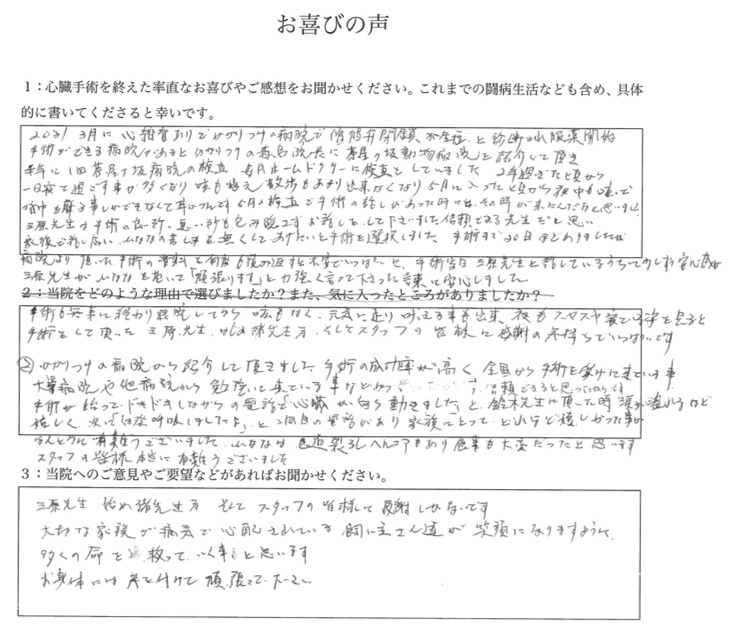 お喜びの声
1：心臓手術を終えた率直なお喜びやご感想をお聞かせください。これまでの闘病生活なども含め、具体
的に書いてくださると幸いです。
2021 3月に心雑音ありでかかりつけの病院で僧帽弁閉鎖不全症と診断され服薬開始
手術ができる病院があるとかかりつけの 院長に茶屋ヶ坂動物病院を紹介して頂き
1回茶屋ヶ坂病院の検査 毎月ホームドクターに検査をしていました 2年過ぎた頃から
一日寝て過ごす事が多くなり咳も増え散歩もあまり出来なくなり5月に入った頃から夜中も咳で
検査で手術の話しがあった時はその時が来たんだなと思いました
三原先生は手術の良い事、悪い事も包み隠さずお話しをして下さいました信頼できる先生だと思い
家族で話し合い 手術を選択しました 手術まで30日ほどありましたが
病院より頂いた手術の資料を何度も読み返すと不安でいっぱいだったけど、手術当日三原先生と話しているうちに少しずつ安心感が
三原先生が を抱いて「頑張ります」と力強く言って下さった言葉に安心しました
2：当院をどのような理由で選びましたか？また、気に入ったところがありましたか？
手術も無事に終わり退院してから咳もなく、元気に走り 事も出来、夜もスヤスヤ寝ている姿を見ると
手術をして頂いた三原先生、 諸先生方、そしてスタッフの皆様に感謝の気持ちでいっぱいです
② かかりつけの病院から紹介して頂きました 手術の成功率が高く全国から手術を受けに来ている事
大学病院や他病院から勉強に来ている事など 信頼できると思ったからです
手術が始まってドキドキしながらの電話で「心臓が自ら動きました」と、鈴木先生に頂いた時涙が溢れるほど
嬉しく、次に「自発呼吸しましたよ」と2回目の電話があり家族にとってどれほど嬉しかった事か
ほんとうに有難うございました ヘルニアもあり 大変だったと思います
スタッフの皆様 本当に有難うございました
3：当院へのご意見やご要望などがあればお聞かせください。
三原先生 始め諸先生方 そしてスタッフの皆様に感謝しかないです
大切な家族が病気で心配されている飼い主さん達が笑顔になりますように、
多くの命を救っていく事と思います
お身体には気を付けて頑張って下さい